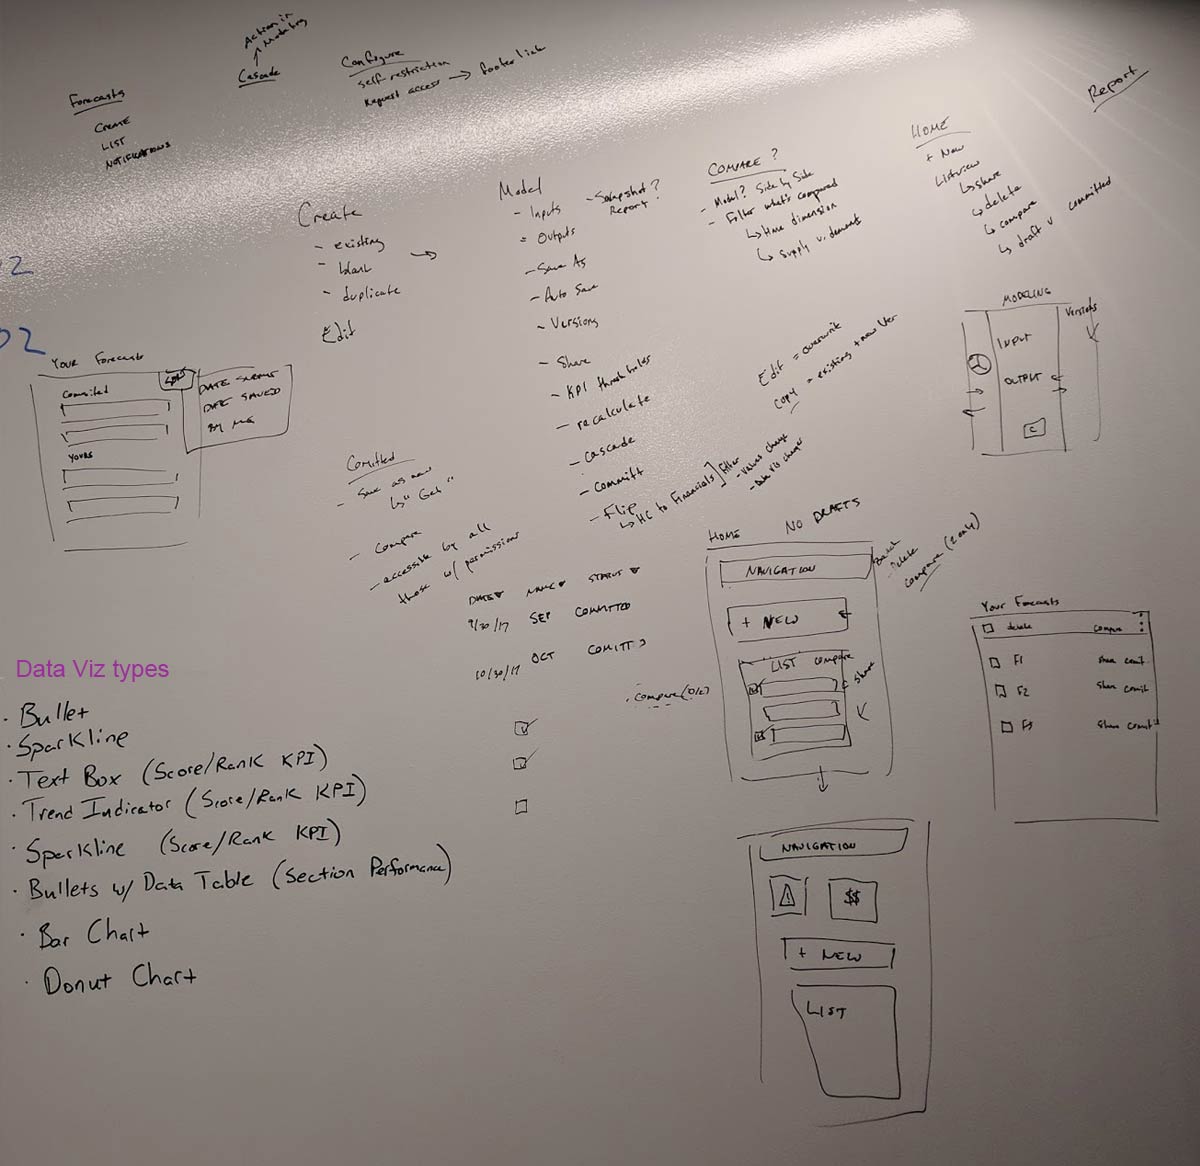 Action in
Modeling
Cascade
Configure
self-restriction
Request access → footer link
Forecasts
CREATE
LIST
NOTIFICATIONS
Report
HOME
+ New
Listview
↳ share
↳ delete
↳ compare
↳ draft v committed
COMPARE ?
- Model? Side by Side
- Filter what's compared
↳ time dimension
↳ supply v. demand
Model
- Inputs
- Snapshot?
Report?
- Outputs
- Save As
- Auto Save
- Versions
- Share
- KPI thresholds
- recalculate
- cascade
- committ
- Flip
↳ HC to Financials] filter
- values change
- Data Vis change
Create
- existing →
- blank
- duplicate
Edit
Edit = overwrite
copy = existing + new Ver
MODELING
Versions
INPUT
OUTPUT
C
02
YOUR Forecasts
Committed
SORT
DATE SUBMIT
DATE SAVED
BY ME
YOURS
Comitted
- Save as new
↳ "Get"
- Compare
- accessible by all
those w/ permissions
DATE▼ NAME▼ STATUS▼
9/30/17 SEP COMMITTED
10/30/17 OCT COMITT
compare (2 only)
HOME NO DRAFTS
NAVIGATION
+ NEW
LIST compare
share
Your Forecasts
delete compare
F1 share comit
F2 share comit
F3 share comit
Data Viz types
· Bullet
· Sparkline
· Text Box (Score/Rank KPI)
· Trend Indicator (Score/Rank KPI)
· Sparkline (Score/Rank KPI)
· Bullets w/ Data Table (Section Performance)
· Bar Chart
· Donut Chart
NAVIGATION
! $$
+ NEW
LIST